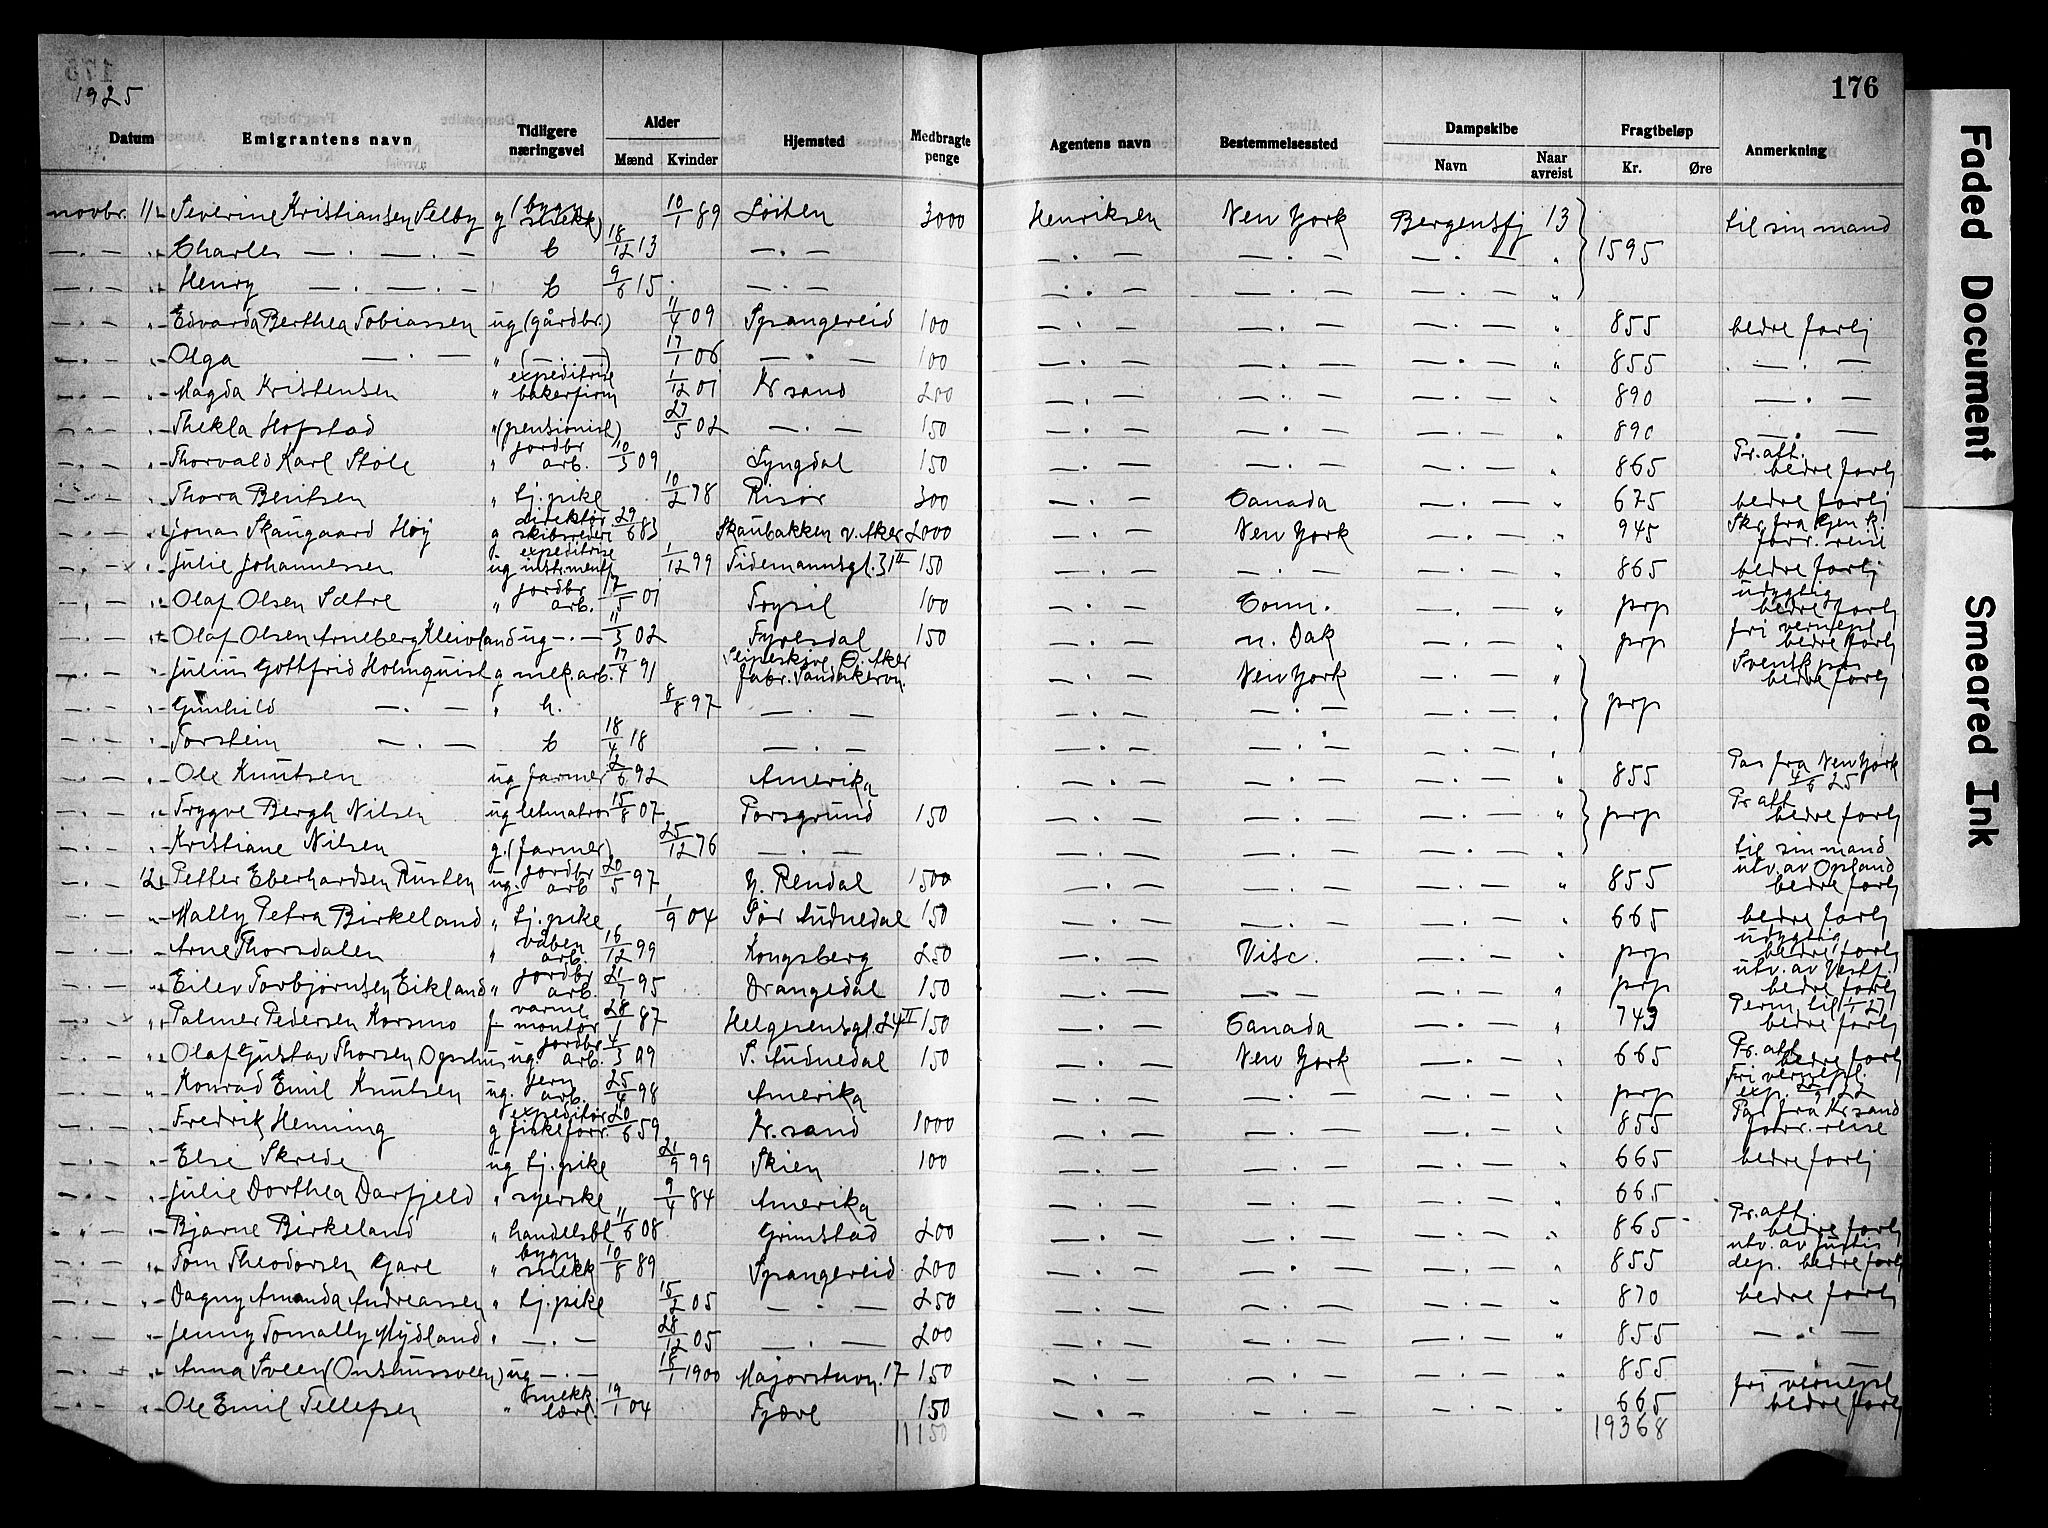 176
1925
Datum Emigrantens navn Tidligere næringsvei Alder Mænd Kvinder Hjemsted Medbragte penge Agentens navn Bestemmelsessted Dampskibe Navn Naar avreist Fragtbeløp Kr. Øre Anmerkning
novbr. 11 Severine Kristiansen Selby g (bygn snekk) 10/1 89 Löiten 3000 Henriksen New York Bergensfj 13 til sin mand
— . — " Charles — . — . — b 18/12 13 — . — — . — — . — — . — " 1595
— . — " Henry — . — . — b 9/6 15 — . — — . — — . — — . — "
— . — " Edvarda Berthea Tobiassen ug (gårdbr.) 11/4 09 Spangereid 100 — . — — . — — . — " 855 bedre forhj
— . — " Olga — . — " ( — . — ) 17/1 06 — . — 100 — . — — . — — . — " 855 — . —
— . — " Magda Kristensen " expeditrise bakerfirm 1/12 01 Kr sand 200 — . — — . — — . — " 890 — . —
— . — " Thekla Hofstad " (pensionist) 27/5 02 — . — 150 — . — — . — — . — " 890 — . —
— . — " Thorvald Karl Støle " jordbr arb. 10/3 09 Lyngdal 150 — . — — . — — . — " 865 Pr. att. bedre forhj
— . — " Thora Berntsen " tj. pike 10/2 78 Risør 300 — . — Canada — . — " 675 bedre forhj
— . — " Jonas Skaugaard Høy g direktør skibsrederi 29/6 83 Skaubakken v. Aker 2000 — . — New York — . — " 945 forr. reise
— . — " Julie Johannessen ug expeditrise instrment 1/12 99 Tidemannsgt. 31 II 150 — . — — . — — . — " 865 bedre forhj
— . — " Olaf Olsen Sætre " jordbr arb. 17/5 01 Trysil 100 — . — Conn. — . — " prp udygtig bedre forhj
— . — " Olaf Olsen Arneberg Kleivland ug — . — 11/3 02 Fyresdal 150 — . — n. Dak — . — " prp fri vernepl bedre forhj
— . — " Julius Gottfrid Holmquist g mek. arb. 17/4 91 Ø. Aker fabr. Sandakervn. — . — New York — . — " Svensk pas bedre forhj
— . — " Gunhild — . — " h. 8/8 97 — . — — . — — . — — . — " prp
— . — " Torstein — . — b 18/4 18 — . — — . — — . — — . — "
— . — " Ole Knutsen ug farmer 2/6 92 Amerika — . — — . — — . — " 855 Pas fra New York 4/6 25
— . — " Trygve Bergh Nilsen ug letmatros 15/8 07 Porsgrund 150 — . — — . — — . — " prp Pr att bedre forhj
— . — " Kristiane Nilsen g. (farmer) 25/12 76 — . — — . — — . — — . — " til sin mand
— . — 12 Petter Eberhardsen Rusten ug. jordbr arb 20/5 97 Y. Rendal 1500 — . — — . — — . — " 855 utv. av Opland bedre forhj
— . — " Mally Petra Birkeland " tj. pike 1/9 04 Sør Audnedal 150 — . — — . — — . — " 665 bedre forhj
— . — " Arne Thorsdalen " våben arb. 16/12 99 Kongsberg 250 — . — Visc. — . — " prp udygtig bedre forhj
— . — " Eilev Torbjørnsen Eikland " jordbr arb. 21/7 95 Drangedal 150 — . — — . — — . — " prp utv. av Vestf. bedre forhj
— . — " Palmer Pedersen Korsmo f varme montør 28/1 87 Helgesensgt. 24 II 150 — . — Canada — . — " 743 Perm til 1/1 27 bedre forhj
— . — " Olaf Gustav Thorsen ug. jordbr arb. 4/3 99 S. Audnedal 150 — . — New York — . — " 665 Pr. att bedre forhj
— . — " Konrad Emil Knutsen ug. jern arb. 25/4 98 Amerika — . — — . — — . — " prp Fri vernepl. exp. 22/9 22
— . — " Fredrik Henning g expeditør fiskeforr. 20/6 59 Kr. sand 1000 — . — — . — — . — " 855 Pas fra Kr sand forr. reise
— . — " Else Skrede ug tj. pike 21/9 99 Skien 100 — . — — . — — . — " 665 bedre forhj
— . — " Julie Dorthea Darfjeld " syerske 9/4 84 Amerika — . — — . — — . — " 665
— . — " Bjarne Birkeland " handelsbt 11/6 08 Grimstad 200 — . — — . — — . — " 865 Pr. att. bedre forhj
— . — " Tom Theodorsen Gare " bygn snekk 10/8 89 Spangereid 200 — . — — . — — . — " 855 utv. av Justis dep. bedre forhj
— . — " Dagny Amanda Andreassen " tj. pike 15/2 05 — . — 250 — . — — . — — . — " 870 bedre forhj
— . — " Jenny Tomally Nydland " — . — 28/12 05 — . — 200 — . — — . — — . — " 855 — . —
— . — " Anna Sveen (Onshussveen) ug — . — 18/1 1900 Majorstuvn. 17 150 — . — — . — — . — " 855 — . —
— . — " Ole Emil Tellefsen " snekk lærl. 19/1 04 Fjære 150 — . — — . — — . — " 665 fri vernepl bedre forhj
11150 19368
Faded Document
Smeared Ink